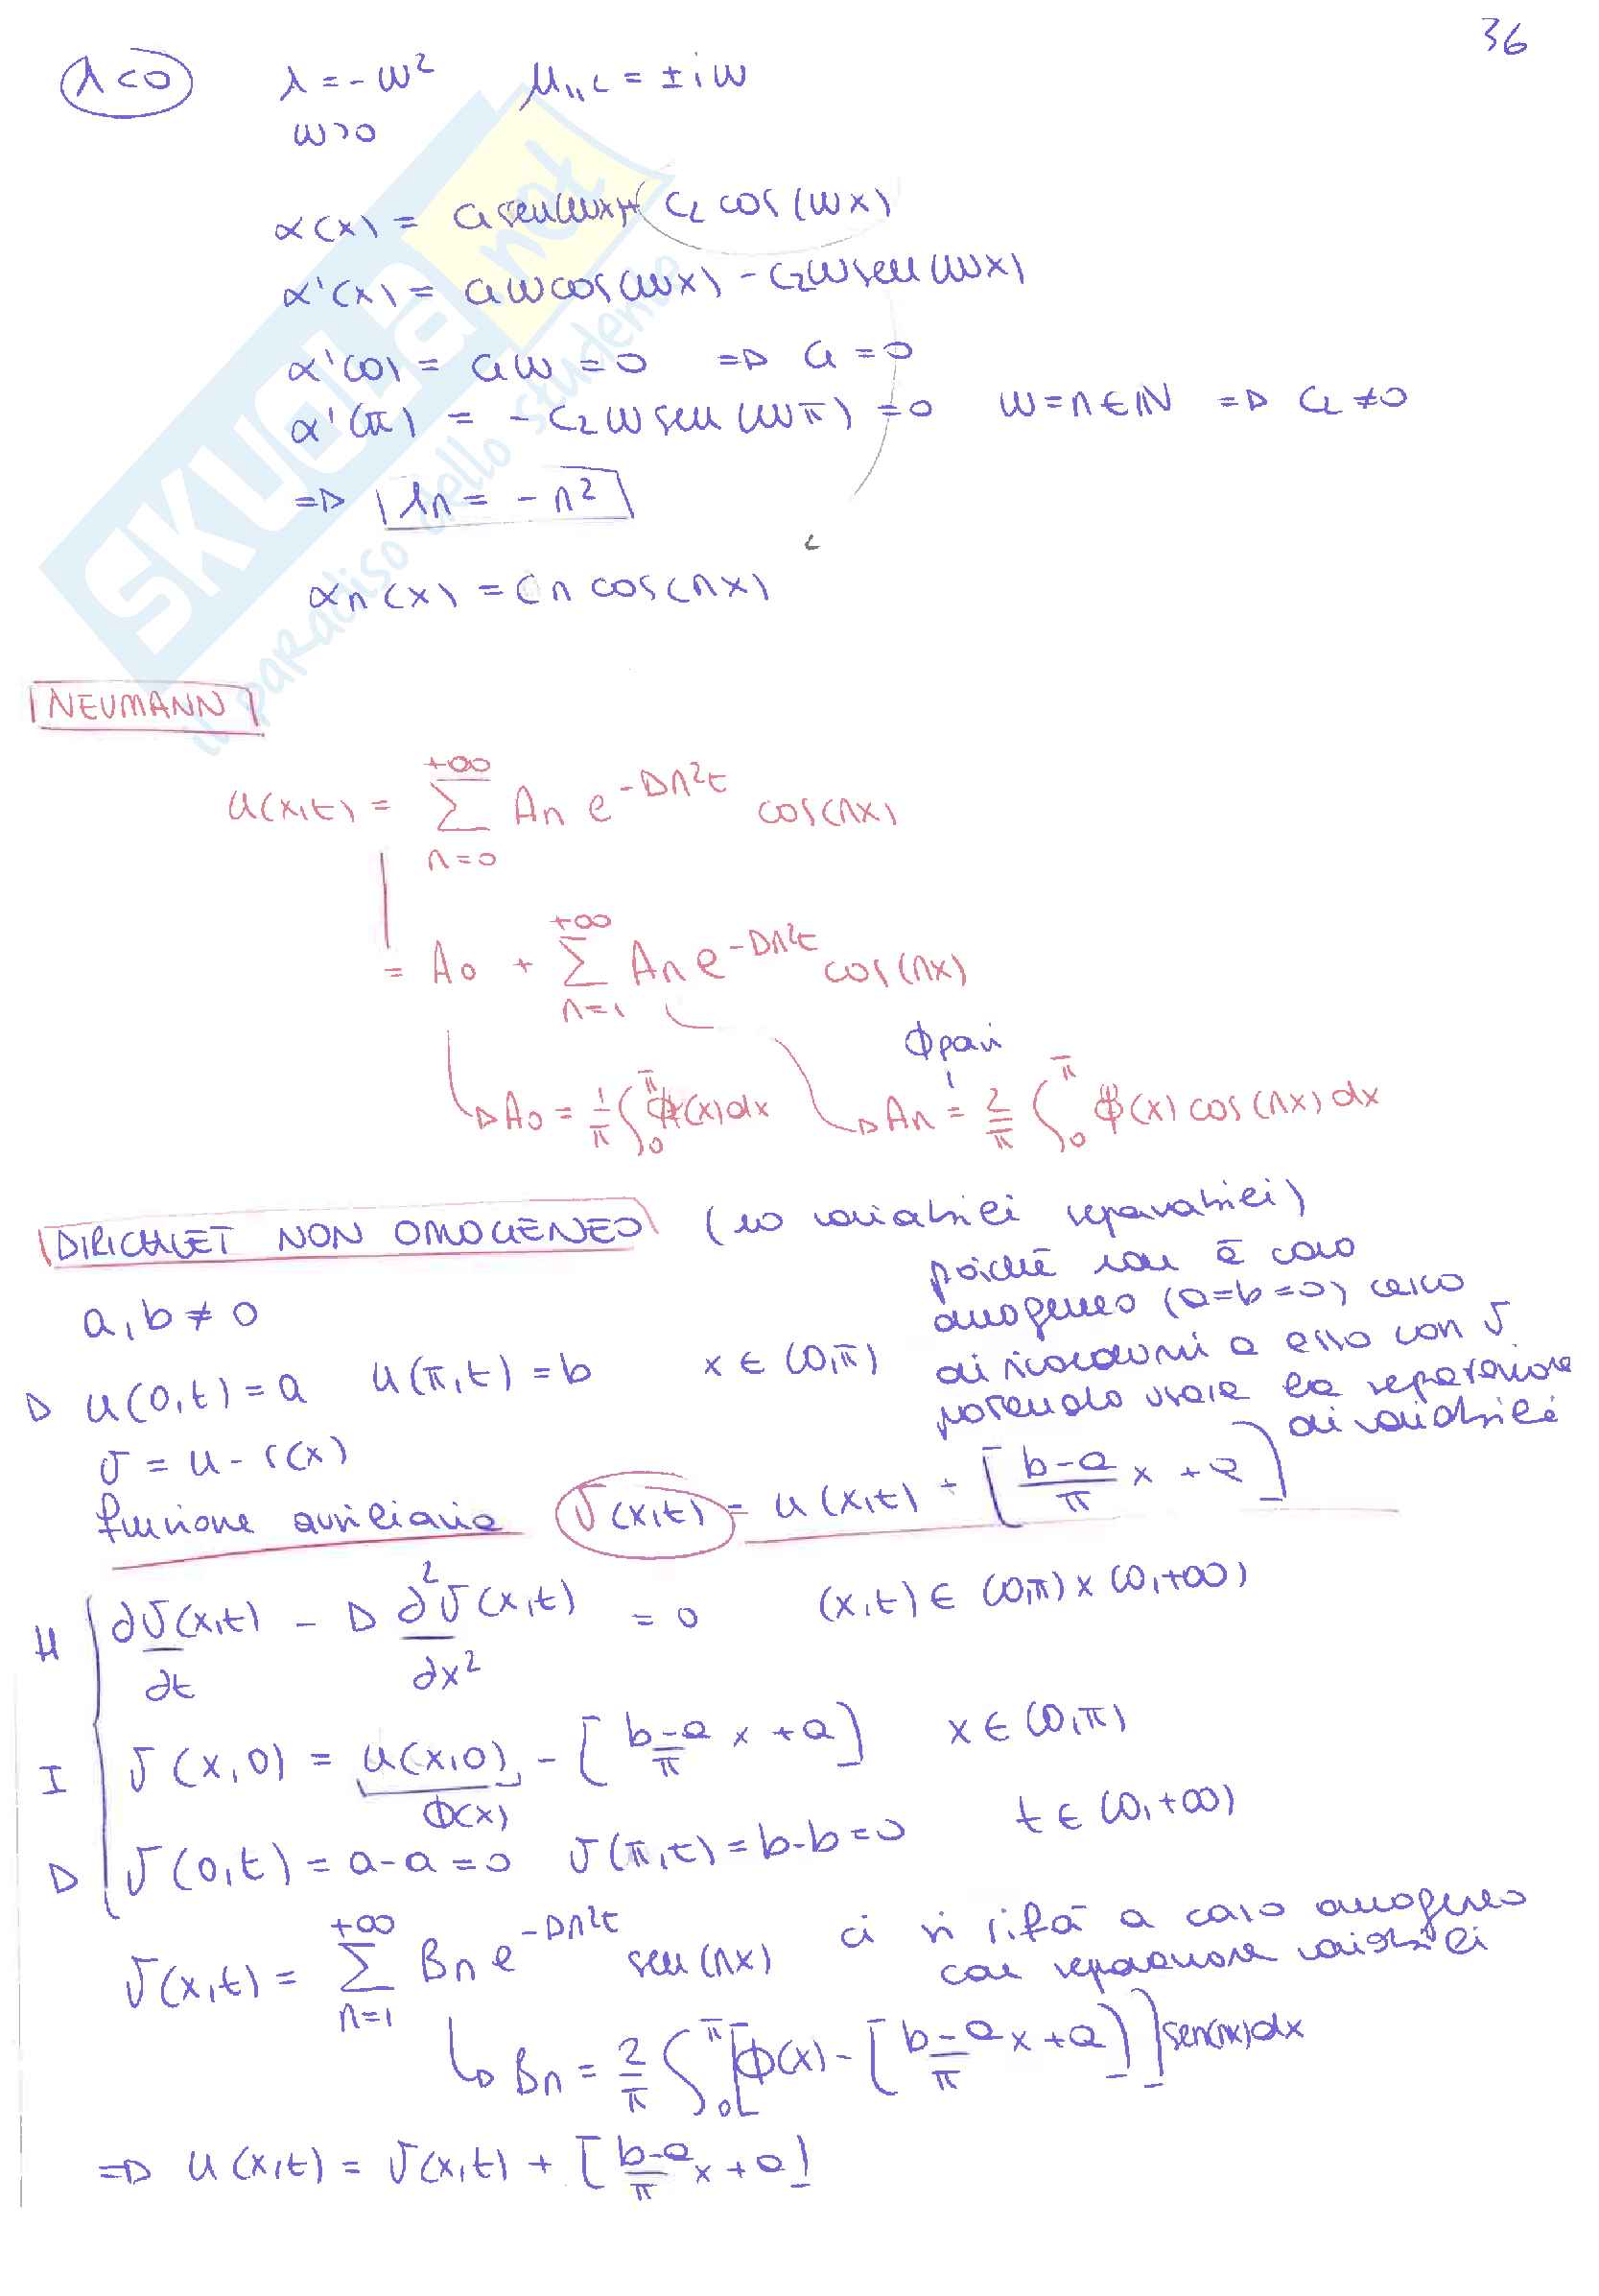 36
λ<0 λ = -ω² μ₁,₂ = ± iω
ω>0
α(x) = c₁ sen(ωx) + c₂ cos(ωx)
α'(x) = c₁ω cos(ωx) - c₂ω sen(ωx)
α'(0) = c₁ω = 0 => c₁ = 0
α'(π) = -c₂ω sen(ωπ) = 0 ω = n ∈ ℕ => c₂ ≠ 0
=> λn = -n²
αn(x) = Cn cos(nx)
NEUMANN
u(x,t) = Σ_{n=0}^{+∞} An e^{-Dn²t} cos(nx)
= A₀ + Σ_{n=1}^{+∞} An e^{-Dn²t} cos(nx)
Φ pari
A₀ = 1/π ∫₀^π Φ(x) dx An = 2/π ∫₀^π Φ(x) cos(nx) dx
DIRICHLET NON OMOGENEO (no variabili separabili)
poiché non è caso
a, b ≠ 0 omogeneo (a=b=0) cerco
D u(0,t) = a u(π,t) = b x ∈ (0,π) di ricondurmi a esso con v
potendo usare la separazione
di variabili
v = u - r(x)
funzione ausiliaria v(x,t) = u(x,t) - [(b-a)/π x + a]
H ∂v(x,t)/∂t - D ∂²v(x,t)/∂x² = 0 (x,t) ∈ (0,π) × (0,+∞)
I v(x,0) = u(x,0) - [(b-a)/π x + a] x ∈ (0,π)
Φ(x)
D v(0,t) = a-a = 0 v(π,t) = b-b = 0 t ∈ (0,+∞)
v(x,t) = Σ_{n=1}^{+∞} Bn e^{-Dn²t} sen(nx) ci si rifà a caso omogeneo
con separazione variabili
Bn = 2/π ∫₀^π [Φ(x) - [(b-a)/π x + a]] sen(nx) dx
=> u(x,t) = v(x,t) + [(b-a)/π x + a]
SKUOLA.net
il paradiso dello studente